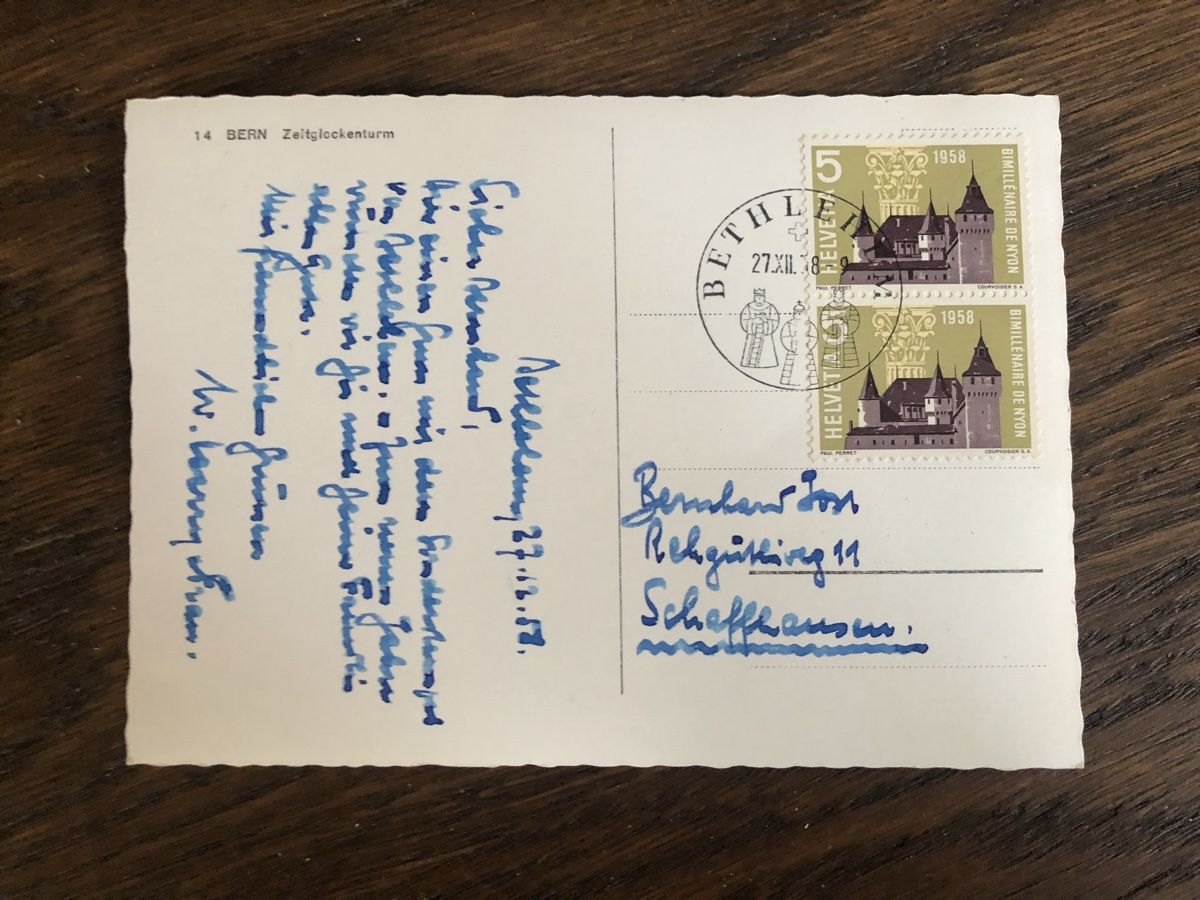 14 BERN Zeitglockenturm
27.12.58.
Lieber Bernhard,
Hier einen Gruss mit dem Sonderstempel
von Bethlehem. Zum neuen Jahre
wünschen wir Dir und Deiner Familie
alles Gute.
Mit freundlichen Grüssen
W.
BETHLEHEM
27.XII.58-9
5
HELVETIA
1958
BIMILLÉNAIRE DE NYON
PAUL PERRET
COURVOISIER S.A.
5
HELVETIA
1958
BIMILLÉNAIRE DE NYON
PAUL PERRET
COURVOISIER S.A.
Bernhard Jost
Rehgütliweg 11
Schaffhausen.